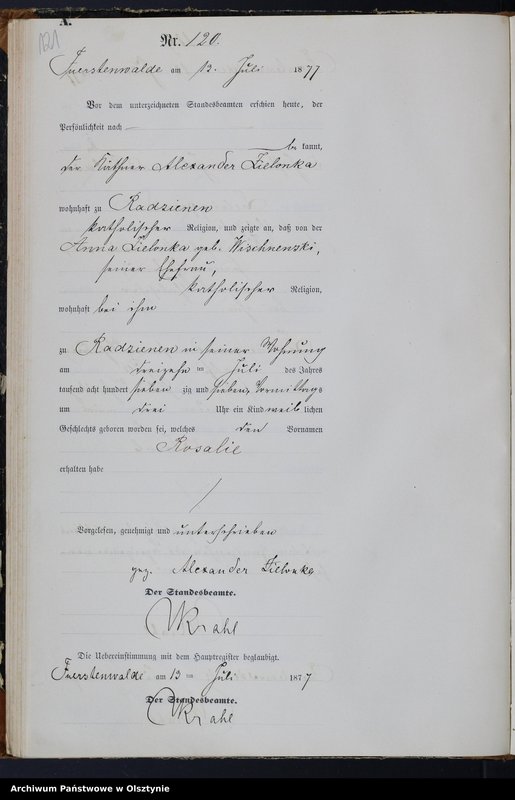 A.
121
Nr. 120.
Fuerstenwalde am 13. Juli 1877
Vor dem unterzeichneten Standesbeamten erschien heute, der
Persönlichkeit nach
be kannt,
der Käthner Alexander Zielonka
wohnhaft zu Radzienen
katholischer Religion, und zeigte an, daß von der
Anna Zielonka geb. Wischnenski,
seiner Ehefrau,
katholischer Religion,
wohnhaft bei ihm
zu Radzienen in seiner Wohnung
am dreizehn ten Juli des Jahres
tausend acht hundert sieben zig und sieben, Vormittags
um drei Uhr ein Kind weib lichen
Geschlechts geboren worden sei, welches den Vornamen
Rosalie
erhalten habe
Vorgelesen, genehmigt und unterschrieben
gez. Alexander Zielonka
Der Standesbeamte.
Krahl
Die Uebereinstimmung mit dem Hauptregister beglaubigt.
Fuerstenwalde am 13 ten Juli 1877
Der Standesbeamte.
Krahl
Archiwum Państwowe w Olsztynie